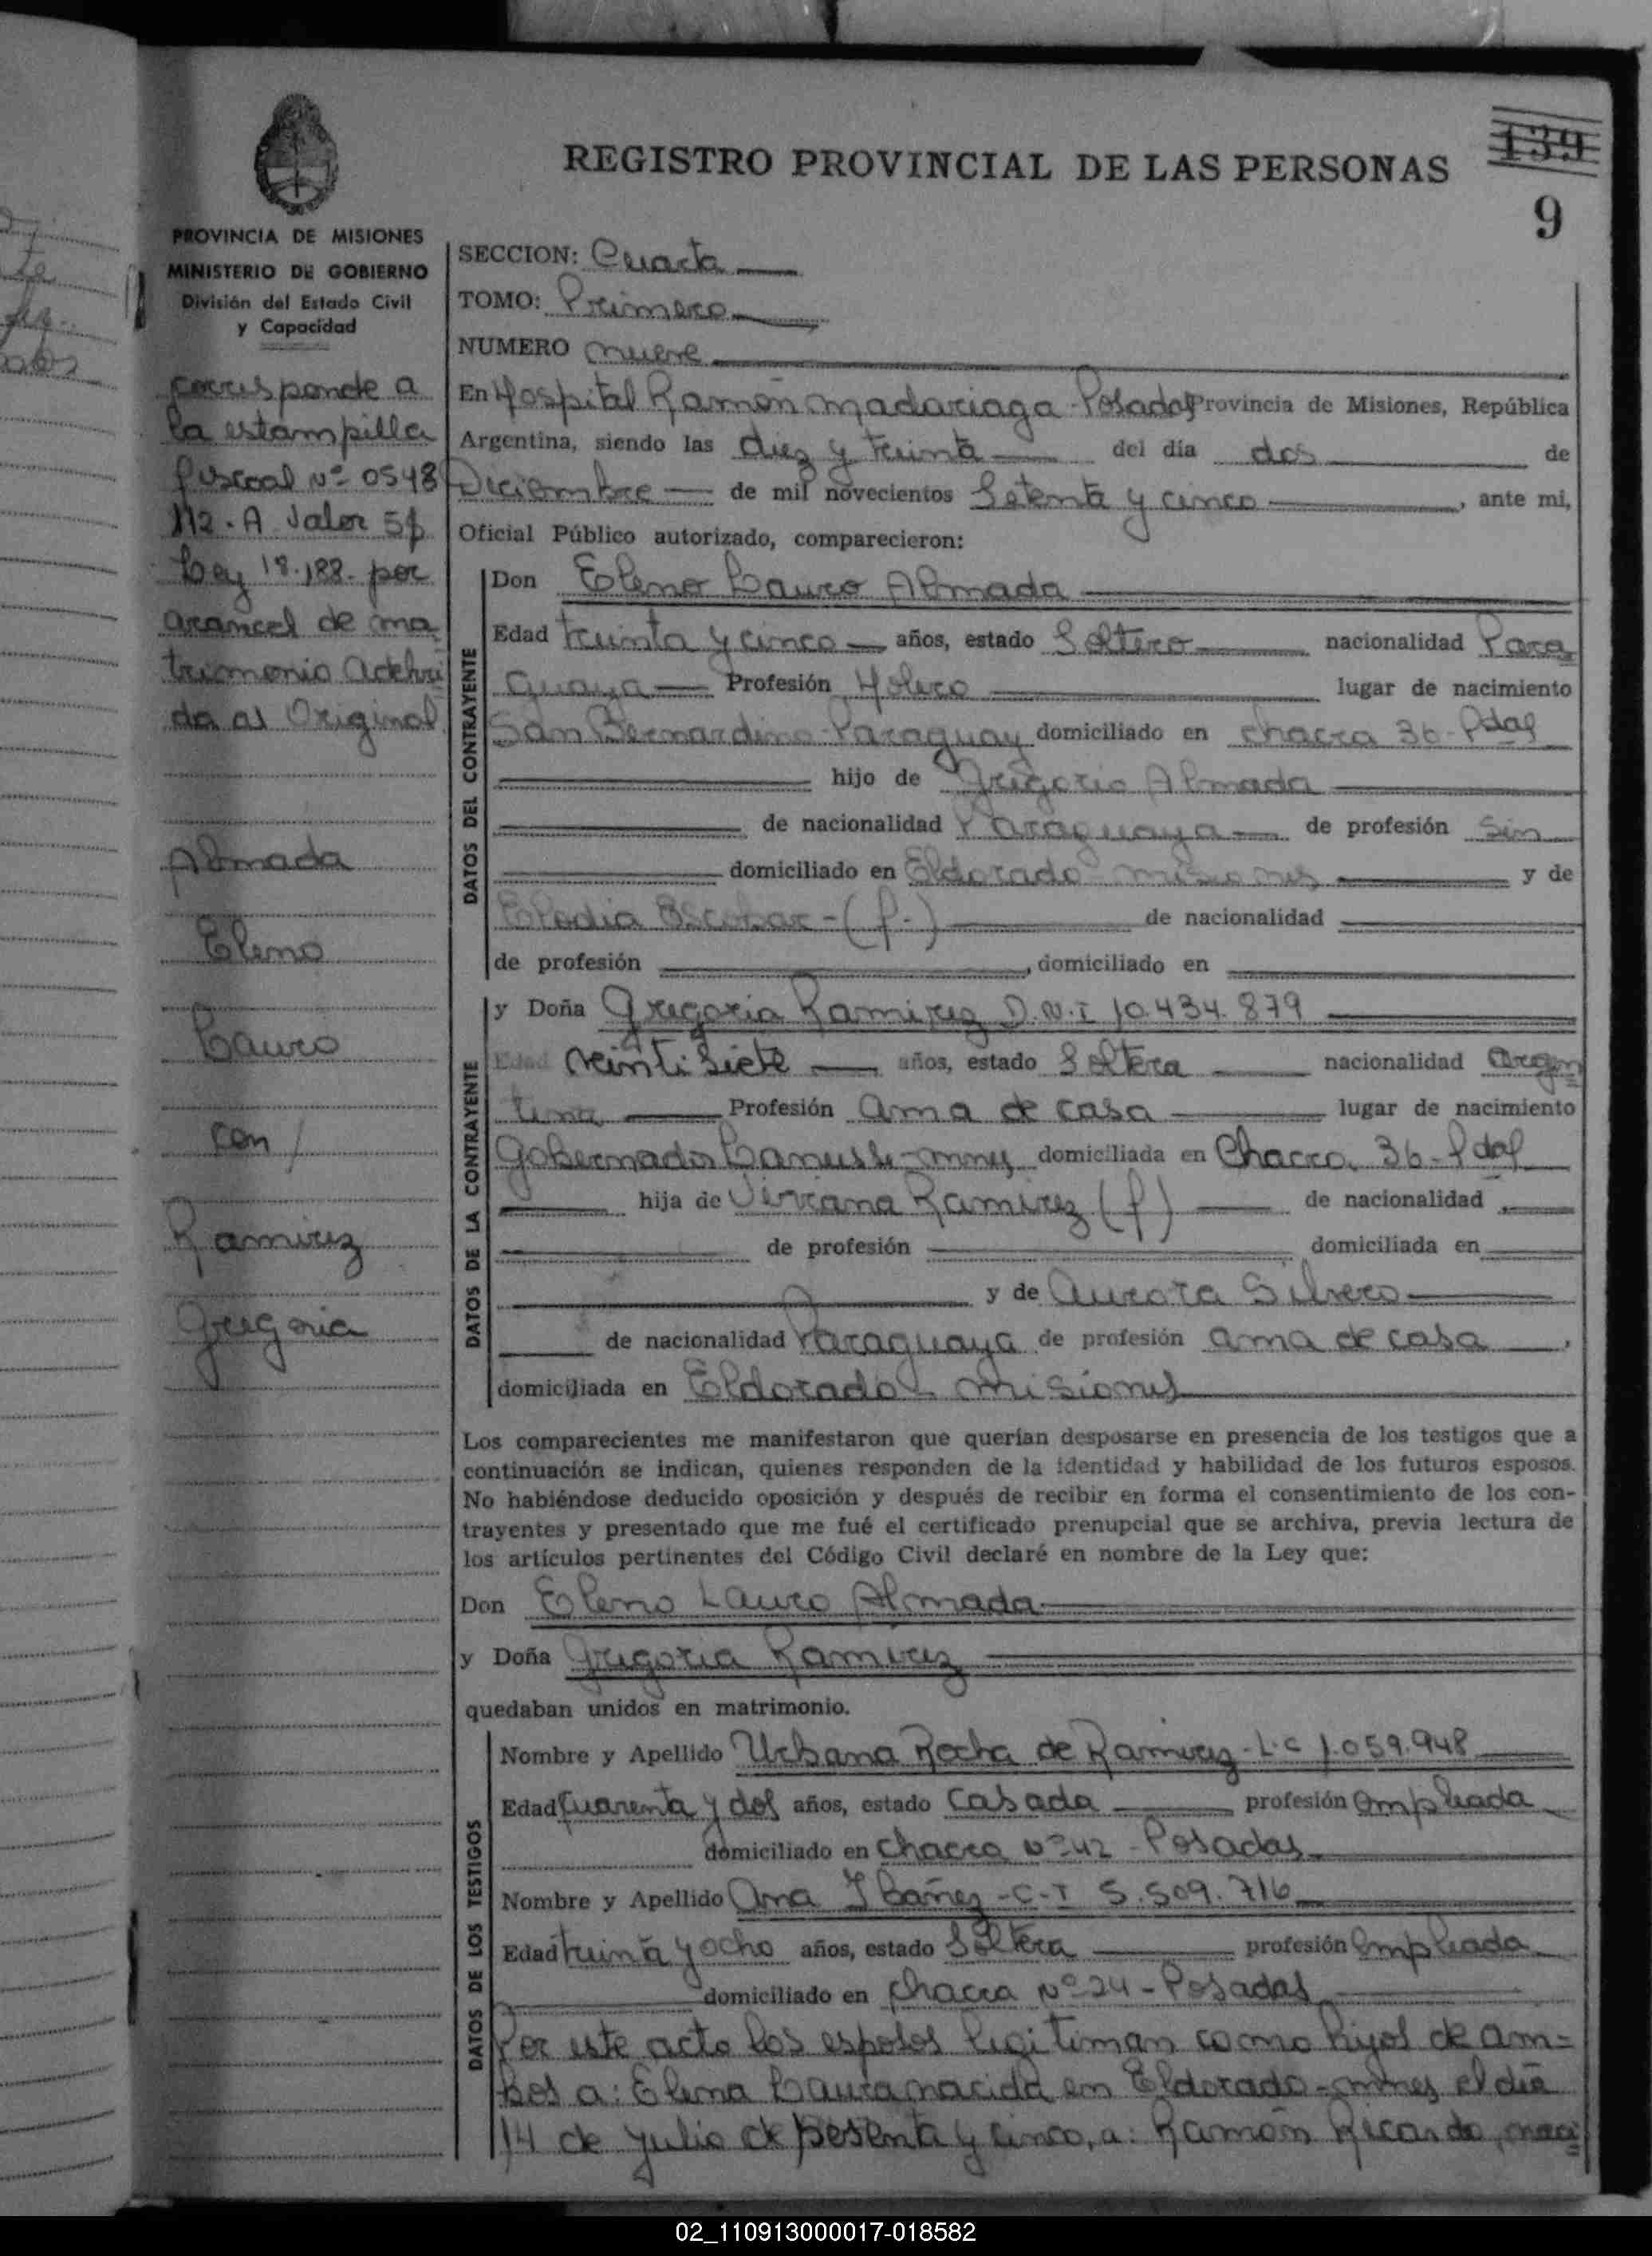 139
REGISTRO PROVINCIAL DE LAS PERSONAS
9
PROVINCIA DE MISIONES
MINISTERIO DE GOBIERNO
División del Estado Civil
y Capacidad
corresponde a
la estampilla
fiscal Nº 0548
112. A Valor 5$
Ley 18.188. por
arancel de ma
trimonio adehri
da al Original
Almada
Eleno
Lauro
con
Ramirez
Gregoria
SECCION: Cuarta
TOMO: Primero
NUMERO nueve
En Hospital Ramón Madariaga - Posadas Provincia de Misiones, República
Argentina, siendo las diez y treinta del día dos de
Diciembre de mil novecientos Setenta y cinco, ante mi,
Oficial Público autorizado, comparecieron:
DATOS DEL CONTRAYENTE
Don Eleno Lauro Almada
Edad treinta y cinco años, estado Soltero nacionalidad Para
guaya Profesión Holero lugar de nacimiento
San Bernardino - Paraguay domiciliado en chacra 36 - Pdas
hijo de Gregorio Almada
de nacionalidad Paraguaya de profesión Sin
domiciliado en Eldorado - misiones y de
Elodia Escobar - (f.) de nacionalidad
de profesión , domiciliado en
DATOS DE LA CONTRAYENTE
y Doña Gregoria Ramirez D.N.I 10.434.879
Edad veinti Siete años, estado Soltera nacionalidad argen
tina Profesión ama de casa lugar de nacimiento
Gobernador Lanusse - mnes domiciliada en Chacra 36 - Pdas
hija de Viviana Ramirez (f) de nacionalidad
de profesión domiciliada en
y de Aurora Silvero
de nacionalidad Paraguaya de profesión ama de casa ,
domiciliada en Eldorado - misiones
Los comparecientes me manifestaron que querían desposarse en presencia de los testigos que a
continuación se indican, quienes responden de la identidad y habilidad de los futuros esposos.
No habiéndose deducido oposición y después de recibir en forma el consentimiento de los con-
trayentes y presentado que me fué el certificado prenupcial que se archiva, previa lectura de
los artículos pertinentes del Código Civil declaré en nombre de la Ley que:
Don Eleno Lauro Almada
y Doña Gregoria Ramirez
quedaban unidos en matrimonio.
DATOS DE LOS TESTIGOS
Nombre y Apellido Urbana Rocha de Ramirez - L.C 1.059.948
Edad Cuarenta y dos años, estado Casada profesión Empleada
domiciliado en chacra Nº 42 - Posadas
Nombre y Apellido Ana Ibañez - C.I 5.509.716
Edad treinta y ocho años, estado Soltera profesión Empleada
domiciliado en chacra Nº 24 - Posadas
Por este acto los esposos legitiman como hijos de am=
bos a: Elena Laura nacida en Eldorado - mnes el día
14 de Julio de sesenta y cinco, a: Ramón Ricardo, naci
02_110913000017-018582